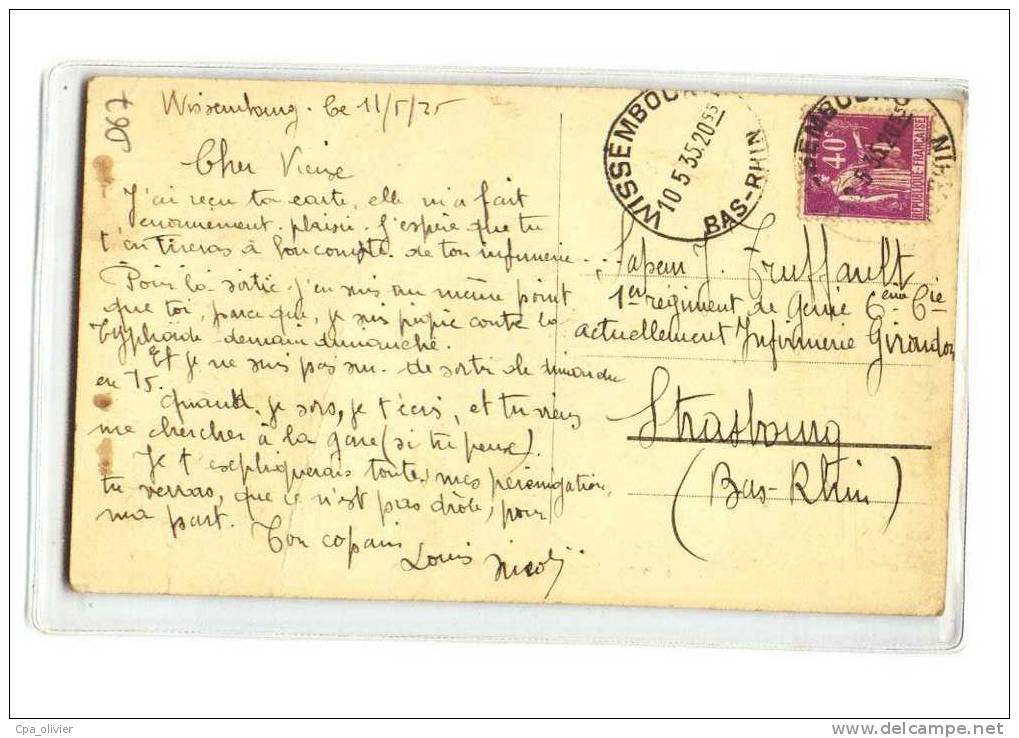 t90
Wissembourg. Le 11/5/35
Cher Vieux
J'ai reçu ta carte, elle m'a fait
énormément plaisir. J'espère que tu
t'en tireras à bon compte de ton infirmerie.
Pour la sortie j'en suis au même point
que toi, parce que, je suis piqué contre la
typhoïde demain dimanche.
Et je ne suis pas sûr de sortir le dimanche
en 15.
Quand je sors, je t'écris, et tu viens
me chercher à la gare (si tu peux).
Je t'expliquerais toutes mes pérénigration,
tu verras, que ce n'est pas drôle, pour
ma part.
Ton copain
Louis
WISSEMBOURG
10 5 35.20 55
BAS-RHIN
40c
REPUBLIQUE FRANÇAISE
Sapeur J. Truffault
1er régiment de Génie 6ème Cie
actuellement Infirmerie Girondon
Strasbourg
(Bas-Rhin)
Cpa_olivier
www.delcampe.net